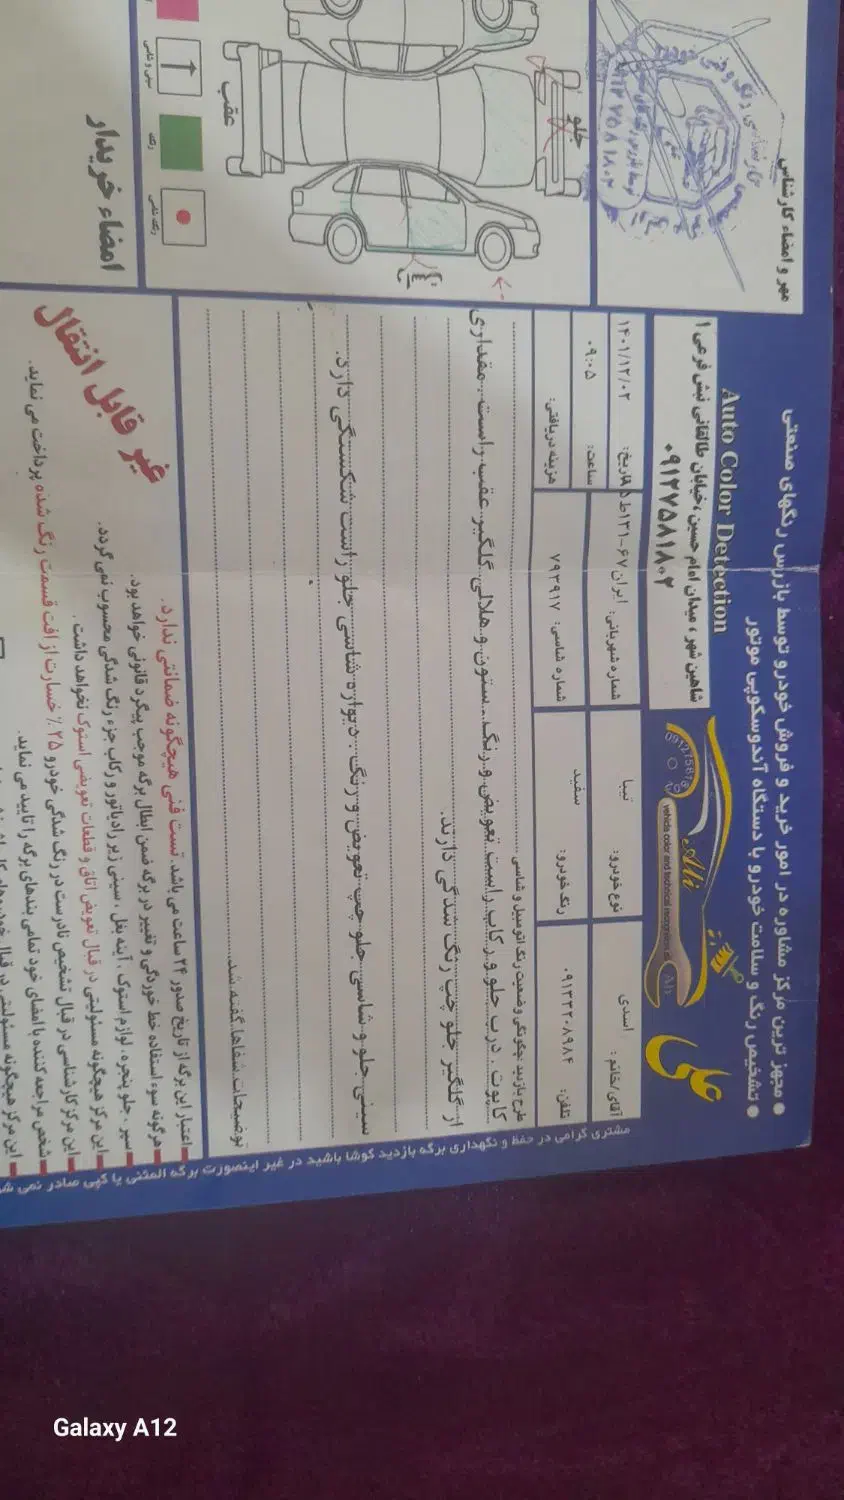 ● مجهز ترین مرکز مشاوره در امور خرید و فروش خودرو توسط بازرس رنگهای صنعتی
● تشخیص رنگ و سلامت خودرو با دستگاه آندوسکوپی موتور
Auto Color Detection
علی
Ali
vehicle color and technical
شاهین شهر ، میدان امام حسین ،خیابان طالقانی نبش فرعی ۱
۰۹۱۲۷۵۸۱۸۰۲
مهر و امضاء کارشناس
آقای/خانم : اسدی
نوع خودرو: تیبا
شماره شهربانی: ایران ۶۷-۱۳۱ط
تاریخ: ۱۴۰۱/۱۲/۰۲
تلفن: ۰۹۱۳۳۲۰۸۹۸۴
رنگ خودرو: سفید
شماره شاسی: ۷۹۳۹۱۷
ساعت: ۰۹:۰۵
هزینه دریافتی:
طرح بازدید چگونگی وضعیت رنگ اتومبیل و شاسی
کاپوت . درب جلو و رکاب راست تعویض و رنگ . ستون و هلالی گلگیر عقب راست . مقداری
از گلگیر جلو چپ رنگ شدگی دارند.
سینی جلو و شاسی جلو چپ تعویض و رنگ . دیواره شاسی جلو راست شکستگی دارد.
توضیحات شفاها گفته شد
جلو
عقب
سینی و شاسی
رنگ
امضاء خریدار
غیر قابل انتقال
اعتبار این برگه از تاریخ صدور ۲۴ ساعت می باشد تست فنی هیچگونه ضمانتی ندارد.
هرگونه سوء استفاده خط خوردگی و تغییر در برگه ضمن ابطال برگه موجب پیگرد قانونی خواهد بود.
سپر . جلو پنجره ، لوازم استوک ، آینه بغل ، سینی زیر رادیاتور و رکاب جزء رنگ شدگی محسوب نمی گردد.
این مرکز هیچگونه مسئولیتی در قبال تعویض اتاق و قطعات تعویضی استوک نخواهد داشت .
این مرکز کارشناسی در قبال تشخیص نادرست در رنگ شدگی خودرو ۲۵٪ خسارت از افت قسمت رنگ شده پرداخت می نماید.
شخص مراجعه کننده با امضای خود تمامی بندهای برگه را تایید می نماید.
این مرکز هیچگونه مسئولیتی در قبال
مشتری گرامی در حفظ و نگهداری برگه بازدید کوشا باشید در غیر اینصورت برگه المثنی یا کپی صادر نمی
Galaxy A12